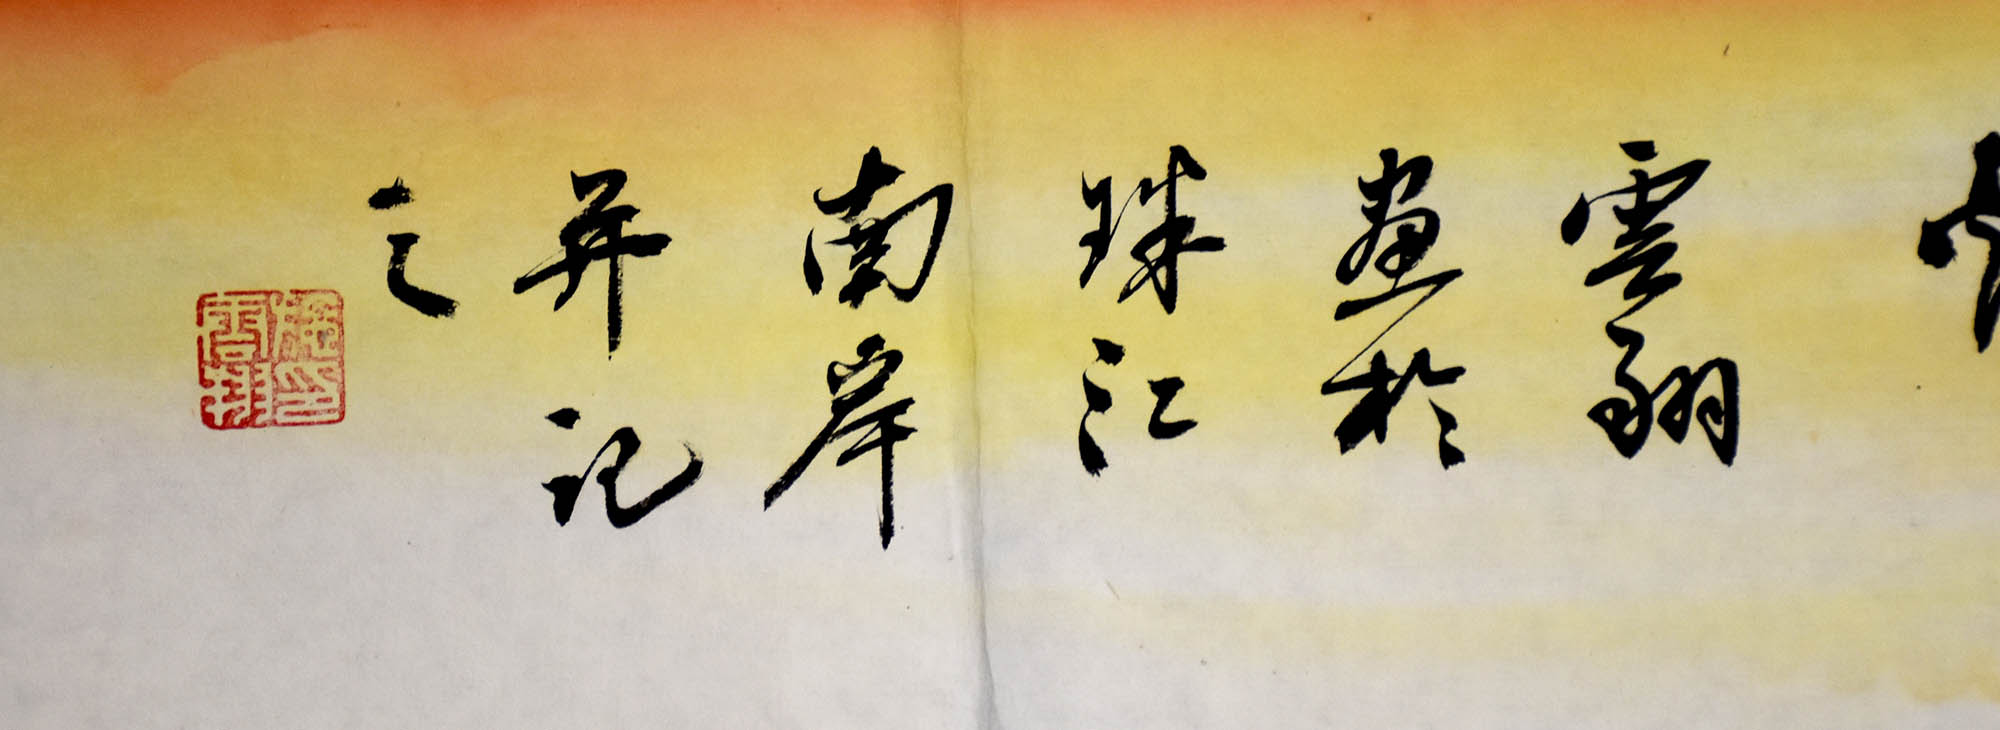 雲翔
畫於
珠江
南岸
并記
之